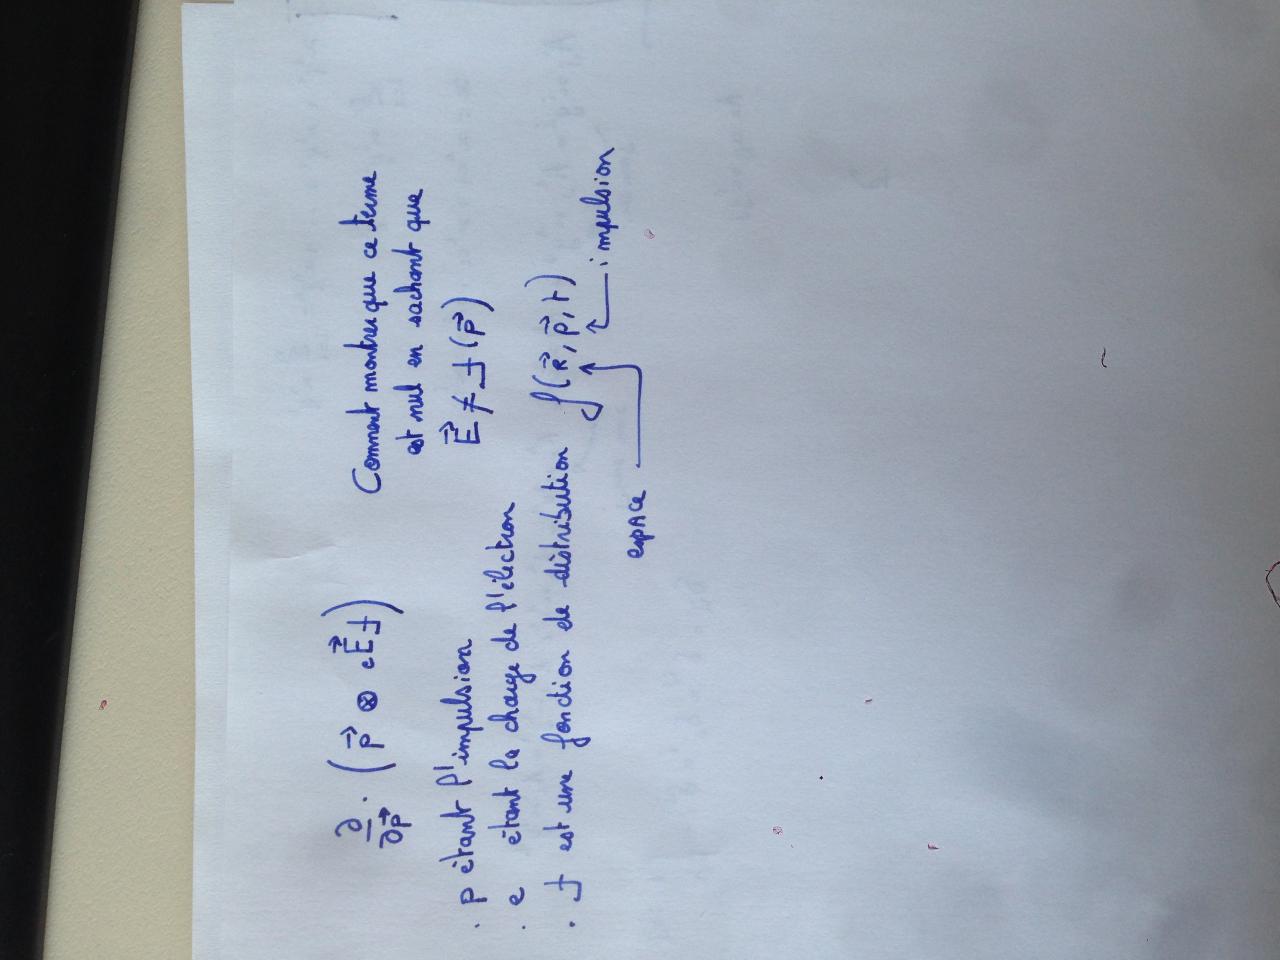 ∂/∂p⃗ · (p⃗ ⊗ eE⃗f)
Comment montrer que ce terme
est nul en sachant que
E⃗ ≠ f(p⃗)
· p étant l'impulsion
· e étant la charge de l'électron
· f est une fonction de distribution f(r⃗, p⃗, t)
espace
impulsion